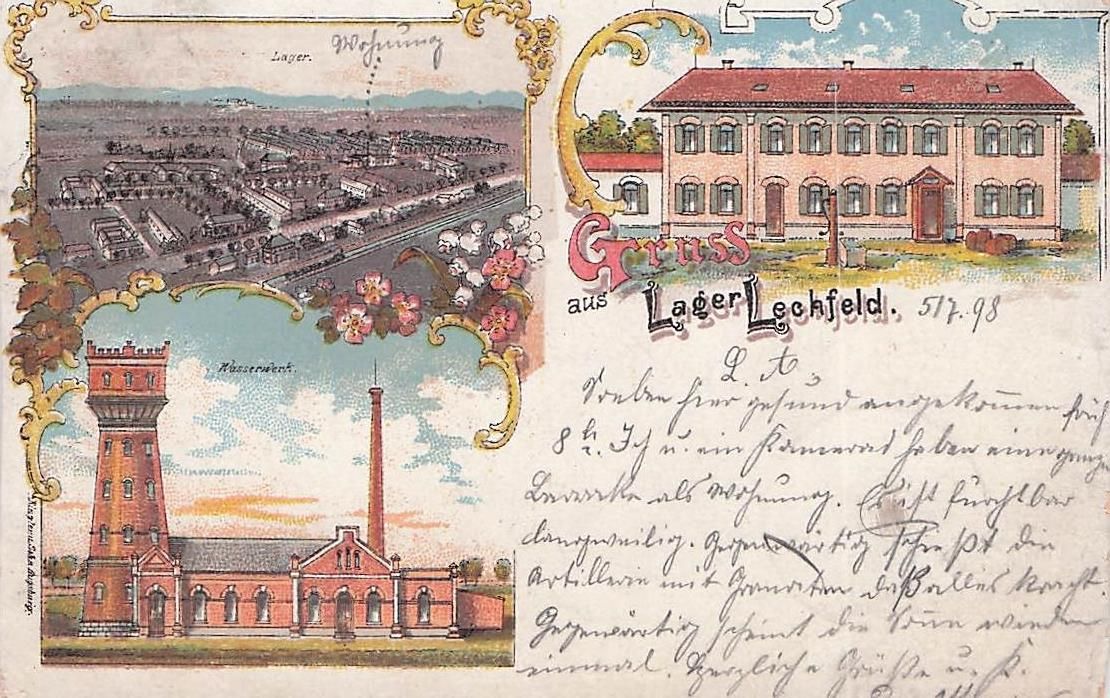 Lager.
Wohnung
Gruss
aus Lager Lechfeld. 5/7.98
Wasserwerk.
L. A.
Soeben hier gesund angekommen früh
8 h. Ich u. ein Kamerad haben eine ganze
Baracke als Wohnung. Es ist furchtbar
langweilig. Gegenwärtig schießt die
Artillerie mit Granaten daß alles kracht.
Gegenwärtig scheint die Sonne wieder
einmal. Herzliche Grüße u. K.